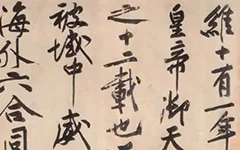 維十有一年
皇帝御天
之十二載也
被域中威
海外六合同